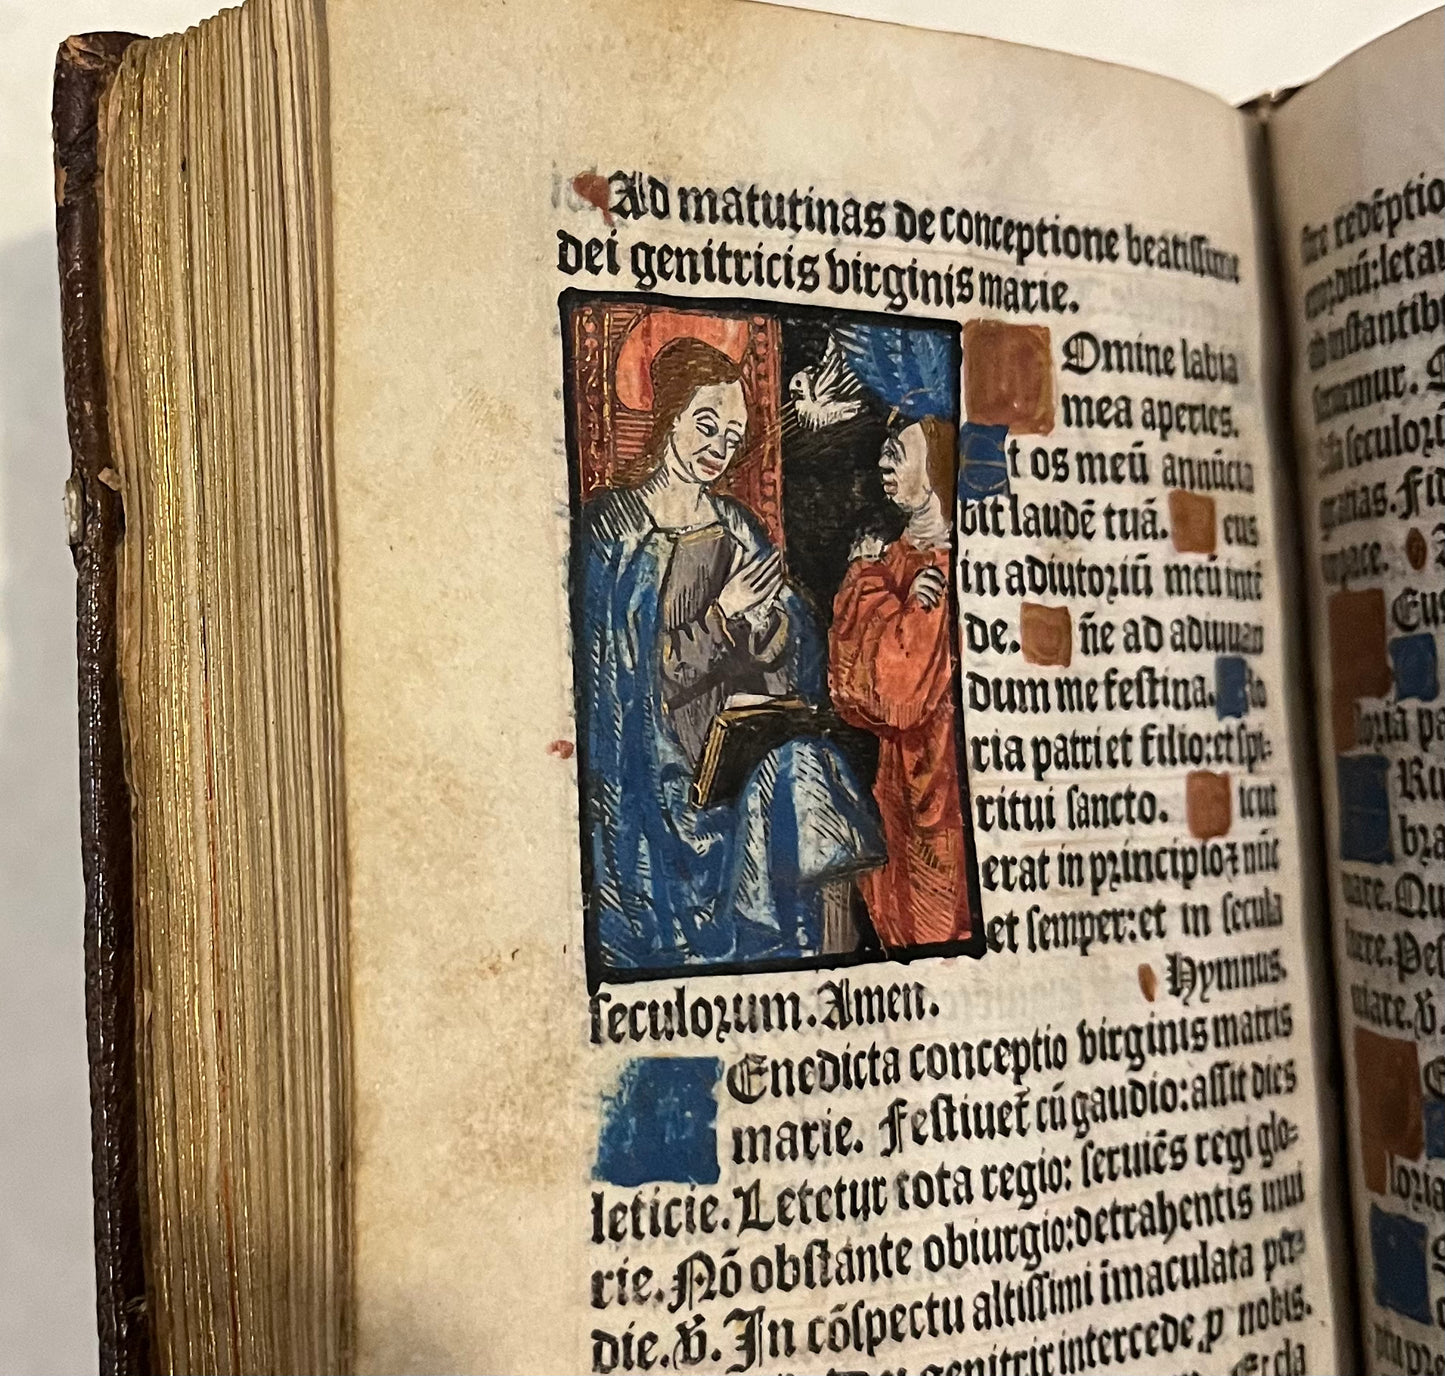 Ad matutinas de conceptione beatissime
dei genitricis virginis marie.
Omine labia
mea aperies.
t os meū annūcia
bit laudē tuā. eus
in adiutoriū meū intē
de. ñe ad adiuuan
dum me festina. lo
ria patri et filio: et spi=
ritui sancto. icut
erat in principio ⁊ nūc
et semper: et in secula
seculorum. Amen.
Hymnus.
Enedicta conceptio virginis matris
marie. Festiuet̄ cū gaudio: assit dies
leticie. Letetur tota regio: seruiēs regi glo=
rie. Nō obstante obiurgio: detrahentis inui
die. V̄. In cōspectu altissimi īmaculata
genitrix intercede p nobis.
redēptio
letan
instantib
. Fid
pace.
Eus
loria pa
Ru
bra
Qu
Pes
V̄.
loria